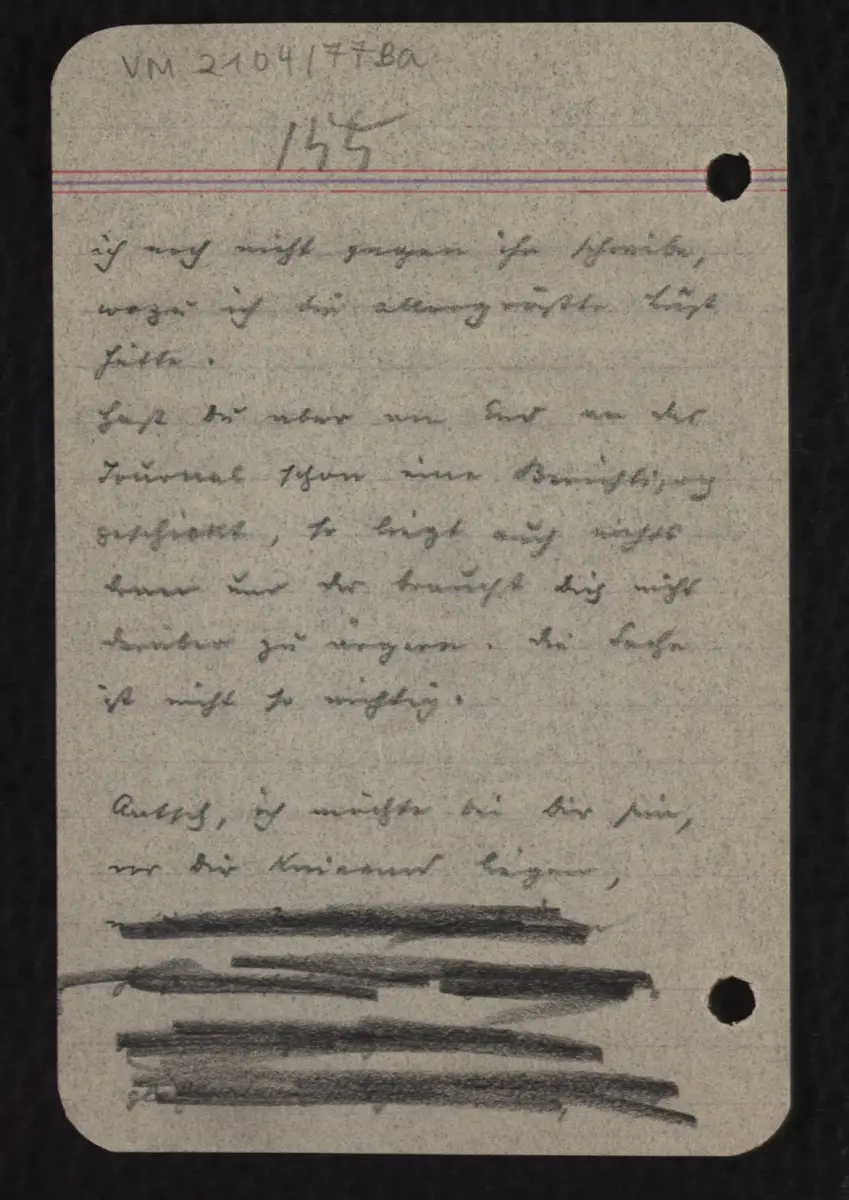 VM 2104/77Ba
155
ich noch nicht gegen ihn schreibe,
wozu ich die allergrößte Lust
hätte.
Hast du aber am End an das
Journal schon eine Berichtigung
geschickt, so liegt auch nichts
dran und du brauchst dich nicht
darüber zu ärgern. Die Sache
ist nicht so wichtig.
ich möchte bei dir sein,
vor dir knieend liegen,